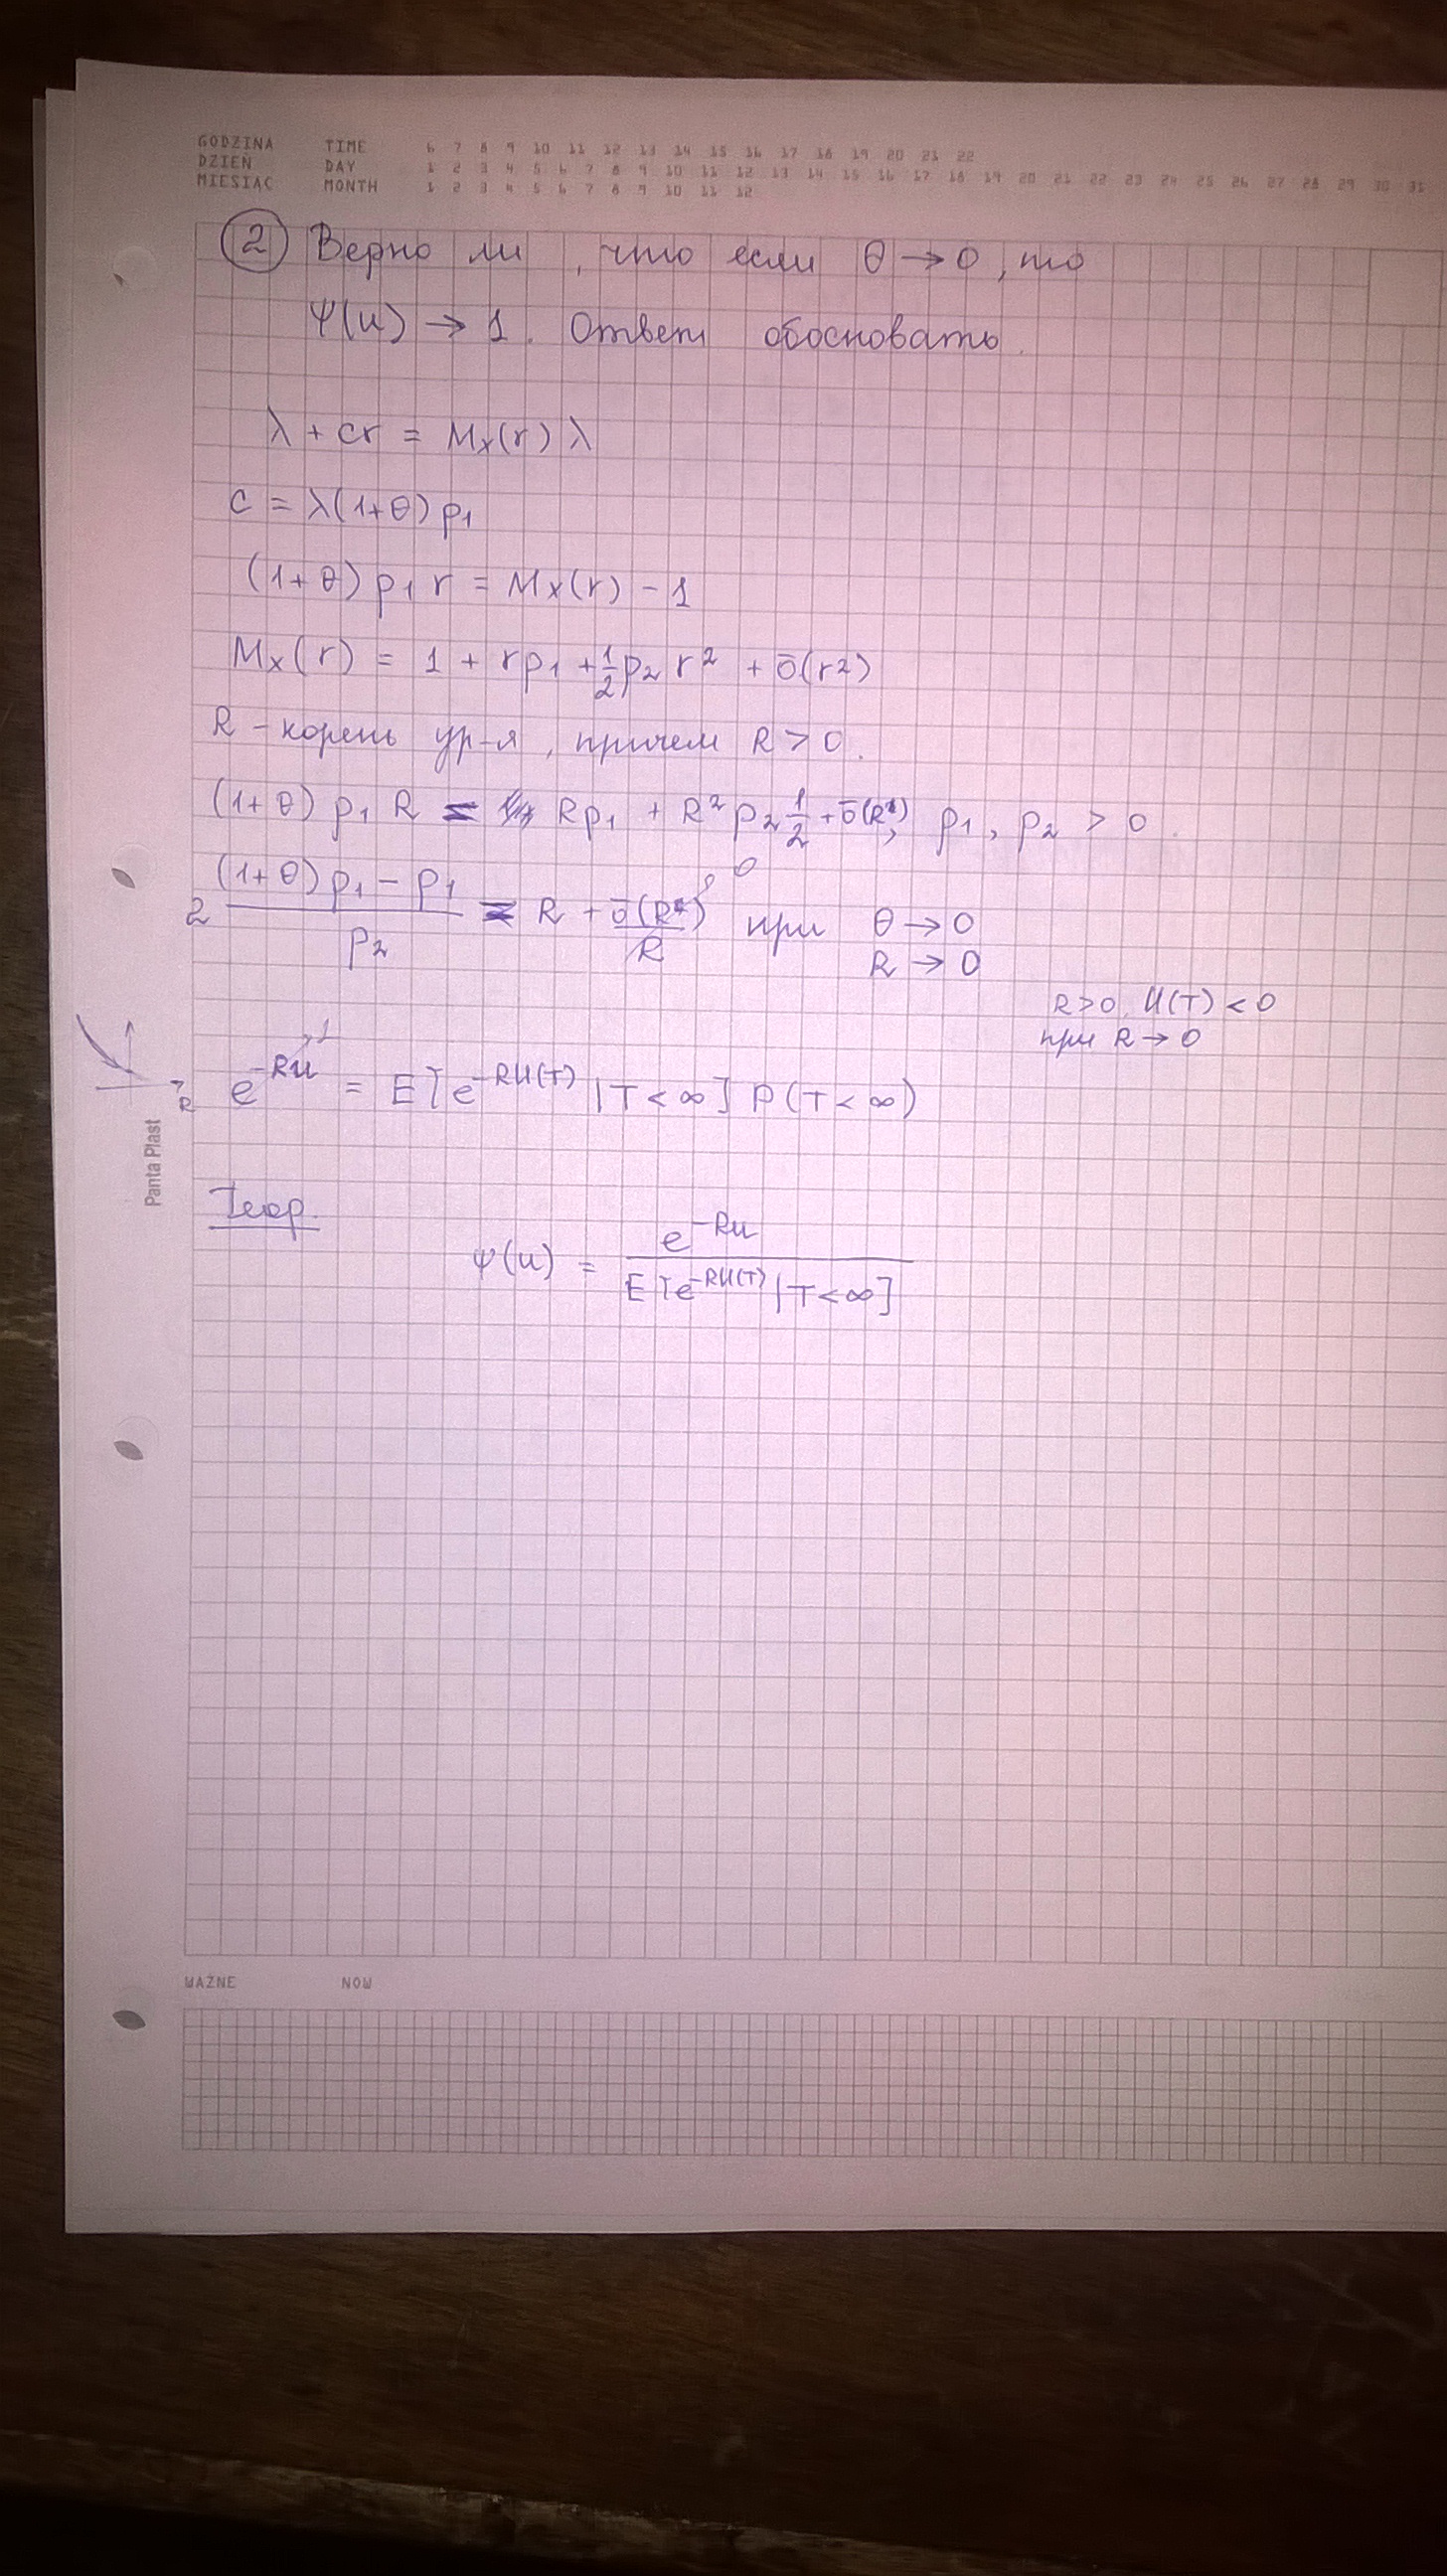 GODZINA TIME 6 7 8 9 10 11 12 13 14 15 16 17 18 19 20 21 22
DZIEŃ DAY 1 2 3 4 5 6 7 8 9 10 11 12 13 14 15 16 17 18 19 20 21 22 23 24 25 26 27 28 29 30 31
MIESIĄC MONTH 1 2 3 4 5 6 7 8 9 10 11 12
② Верно ли, что если θ → 0, то
Ψ(u) → 1. Ответ обосновать.
λ + cr = Mx(r) λ
c = λ(1+θ) p₁
(1+θ) p₁ r = Mx(r) - 1
Mx(r) = 1 + rp₁ + 1/2 p₂ r² + ō(r²)
R - корень ур-я, причем R > 0.
(1+θ) p₁ R = Rp₁ + R² p₂ 1/2 + ō(R²), p₁, p₂ > 0.
2 ((1+θ) p₁ - p₁)/p₂ = R + ō(R²)/R → 0 при θ → 0
R → 0
R > 0, U(T) < 0
при R → 0
e^(-Ru) → 1 = E[e^(-RU(T)) | T < ∞] P(T < ∞)
Panta Plast
Теор.
Ψ(u) = e^(-Ru) / E[e^(-RU(T)) | T < ∞]
WAŻNE NOW